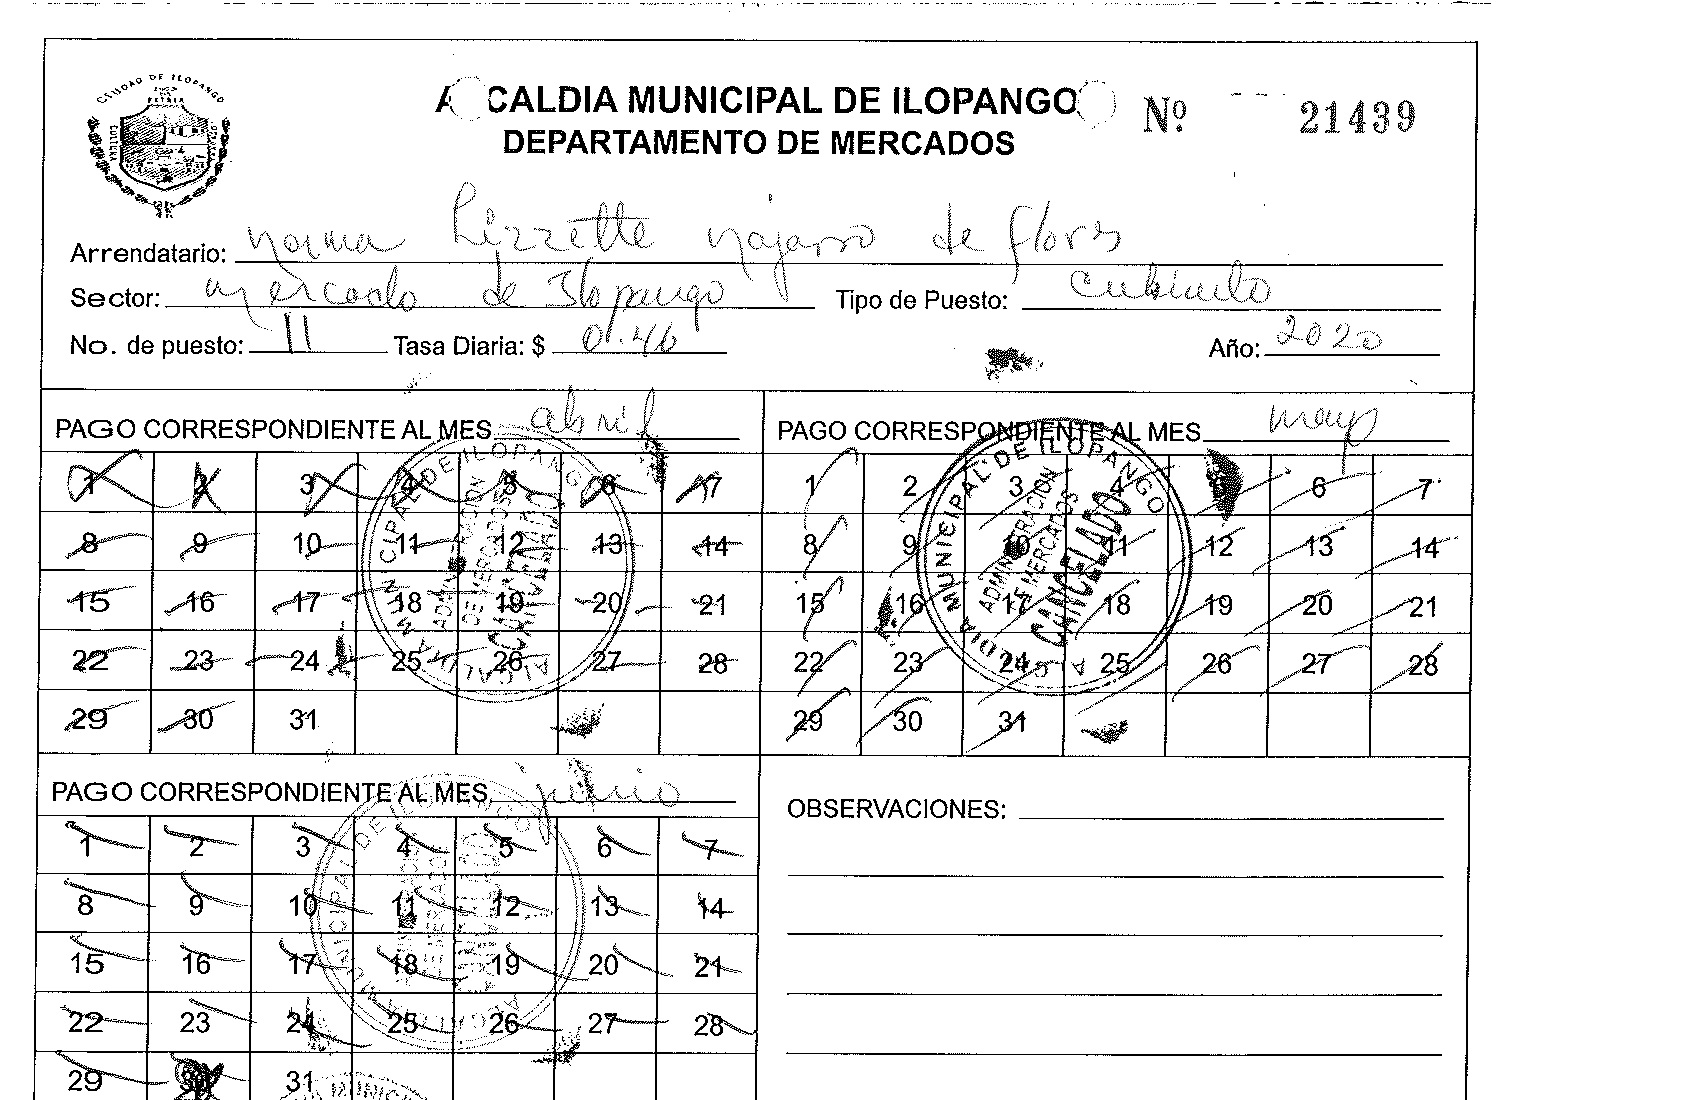 CIUDAD DE ILOPANGO
ALCALDIA MUNICIPAL DE ILOPANGO
Nº 21439
DEPARTAMENTO DE MERCADOS
Arrendatario: Norma Lizzette Najarro de Flores
Sector: Mercado de Ilopango Tipo de Puesto:
No. de puesto: 11 Tasa Diaria: $ 0.46 Año: 2020
PAGO CORRESPONDIENTE AL MES abril
1 2 3 4 5 6 7
8 9 10 11 12 13 14
15 16 17 18 19 20 21
22 23 24 25 26 27 28
29 30 31
ALCALDIA MUNICIPAL DE ILOPANGO
ADMINISTRACION
DE MERCADOS
CANCELADO
PAGO CORRESPONDIENTE AL MES mayo
1 2 3 4 6 7
8 9 10 11 12 13 14
15 16 17 18 19 20 21
22 23 24 25 26 27 28
29 30 31
ALCALDIA MUNICIPAL DE ILOPANGO
ADMINISTRACION
DE MERCADOS
CANCELADO
PAGO CORRESPONDIENTE AL MES junio
1 2 3 4 5 6 7
8 9 10 11 12 13 14
15 16 17 18 19 20 21
22 23 24 25 26 27 28
29 30 31
OBSERVACIONES: